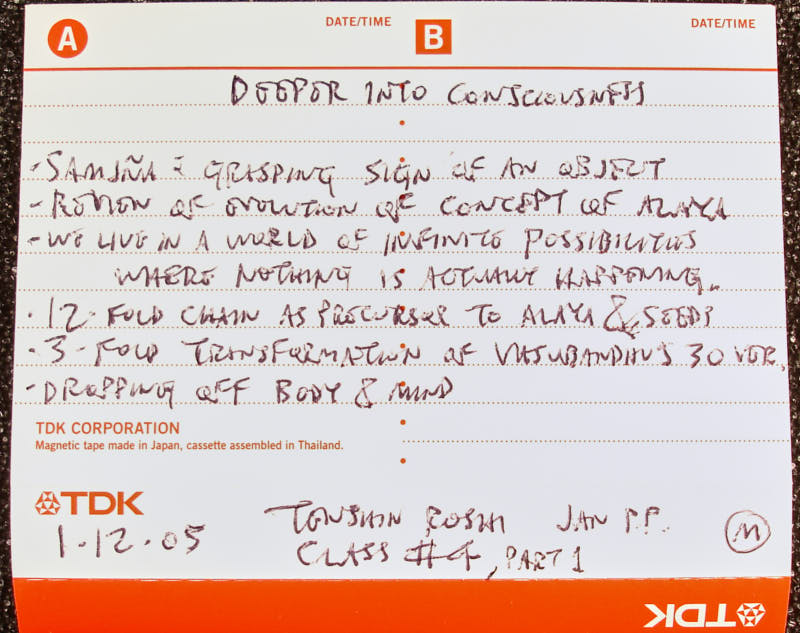 A DATE/TIME B DATE/TIME
DEEPER INTO CONSCIOUSNESS
- SAMJÑA = GRASPING SIGN OF AN OBJECT
- REVIEW OF EVOLUTION OF CONCEPT OF ALAYA
- WE LIVE IN A WORLD OF INFINITE POSSIBILITIES
WHERE NOTHING IS ACTUALLY HAPPENING.
- 12-FOLD CHAIN AS PRECURSOR TO ALAYA & SEEDS
- 3-FOLD TRANSFORMATION OF VASUBANDHU'S 30 VER.
- DROPPING OFF BODY & MIND
TDK CORPORATION
Magnetic tape made in Japan, cassette assembled in Thailand.
TDK
1.12.05 TENSHIN ROSHI JAN P.P. M
CLASS #4, PART 1
TDK